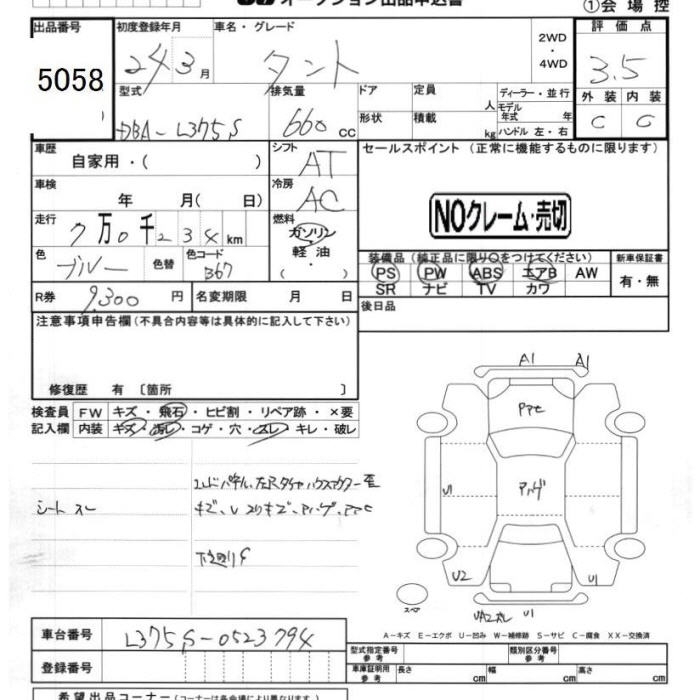 オークション出品申込書
①会場控
出品番号
5058
初度登録年月 車名・グレード
24 3月 タント
2WD・4WD
評価点
3.5
外装 内装
C C
型式 排気量
DBA-L375S 660cc
ドア 定員 人
形状 積載 kg
ディーラー・並行
モデル年式 年
ハンドル 左・右
車歴
自家用・( )
シフト
AT
車検
年 月( 日)
冷房
AC
走行
7万0千234km
燃料
ガソリン・軽油・( )
色
ブルー
色替
色コード
B67
R券 9,300円
名変期限 月 日
セールスポイント(正常に機能するものに限ります)
NOクレーム・売切
装備品(純正品に限り○をつけてください)
PS PW ABS エアB AW
SR ナビ TV カワ
新車保証書
有・無
後日品
注意事項申告欄(不具合内容等は具体的に記入して下さい)
修復歴 有〔箇所 〕
検査員記入欄
FW キズ・飛石・ヒビ割・リペア跡・×要
内装 キズ・汚レ・コゲ・穴・スレ・キレ・破レ
シートスレ
下廻りS
A1 A1
アハゲ
U1
U2 U1
スペア
U1
A-キズ E-エクボ U-凹み W-補修跡 S-サビ C-腐食 XX-交換済
車台番号 L375S-0523794
登録番号
型式指定番号 参考
類別区分番号 参考
車庫証明用 参考
長さ cm 幅 cm 高さ cm
希望出品コーナー(コーナーは各会場により異なります)